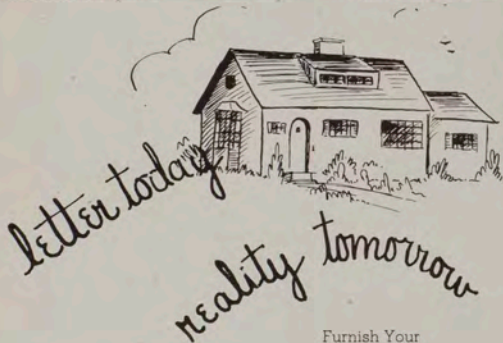 letter today
reality tomorrow
Furnish Your